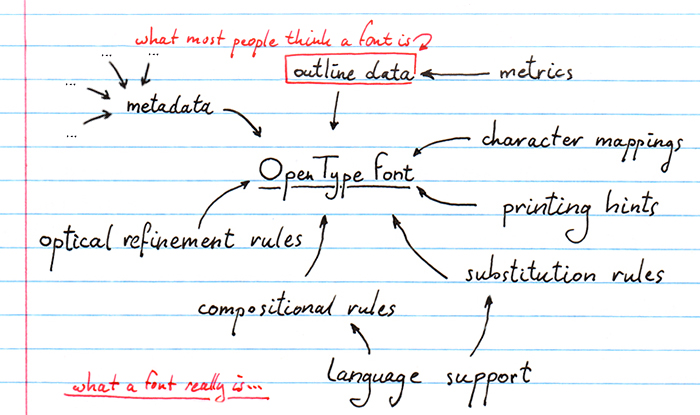 what most people think a font is
...
...
outline data
metrics
...
metadata
...
character mappings
OpenType font
printing hints
optical refinement rules
substitution rules
compositional rules
language support
what a font really is...